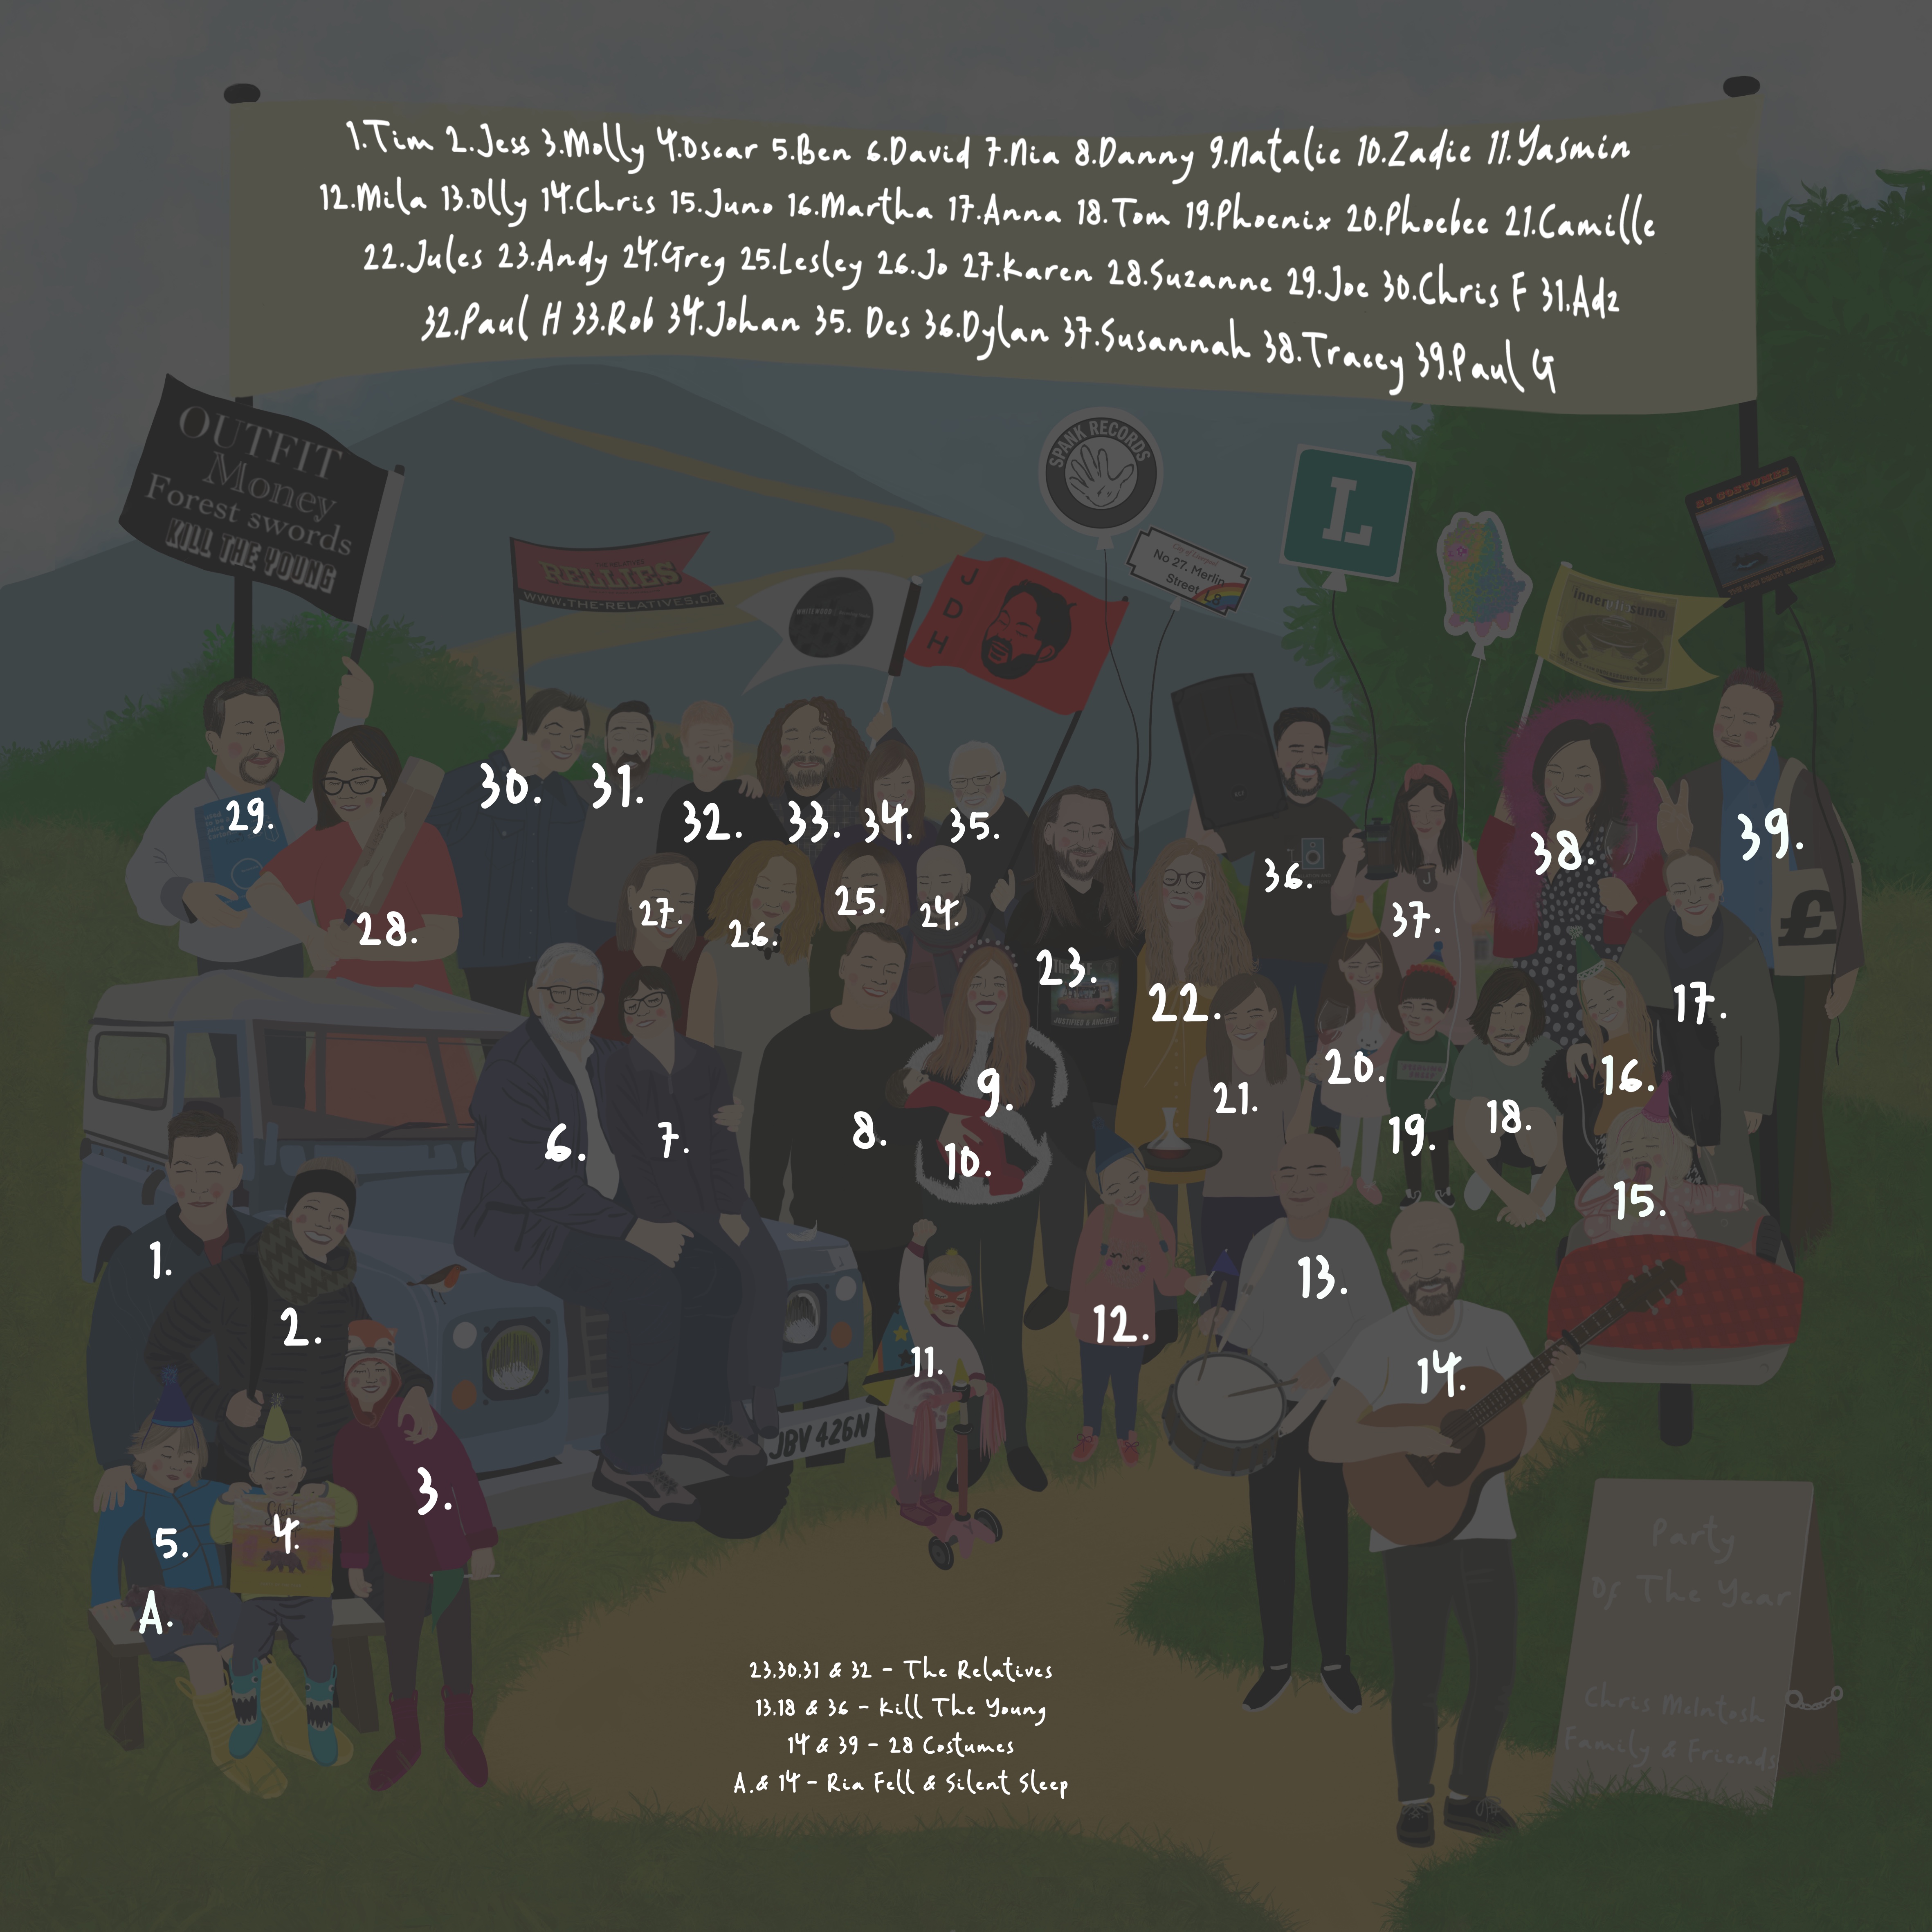 1.Tim 2.Jess 3.Molly 4.Oscar 5.Ben 6.David 7.Nia 8.Danny 9.Natalie 10.Zadie 11.Yasmin
12.Mila 13.Olly 14.Chris 15.Juno 16.Martha 17.Anna 18.Tom 19.Phoenix 20.Phoebee 21.Camille
22.Jules 23.Andy 24.Greg 25.Lesley 26.Jo 27.Karen 28.Suzanne 29.Joe 30.Chris F 31.Adz
32.Paul H 33.Rob 34.Johan 35. Des 36.Dylan 37.Susannah 38.Tracey 39.Paul G
OUTFIT
Money
Forest swords
KILL THE YOUNG
THE RELATIVES
RELLIES
WWW.THE-RELATIVES.OR
JDH
SPANK RECORDS
City of Liverpool
No 27. Merlin
Street L8
L
innercitysumo
28 COSTUMES
30.
31.
29.
32.
33.
34.
35.
36.
38.
39.
28.
27.
26.
25.
24.
37.
J
£
23.
JUSTIFIED & ANCIENT
22.
17.
9.
21.
20.
16.
6.
7.
8.
10.
19.
18.
15.
1.
2.
11.
12.
13.
14.
JBV 426N
3.
5.
4.
A.
Party
Of The Year
Chris McIntosh
Family & Friends
23.30.31 & 32 - The Relatives
13.18 & 36 - Kill The Young
14 & 39 - 28 Costumes
A.& 14 - Ria Fell & Silent Sleep